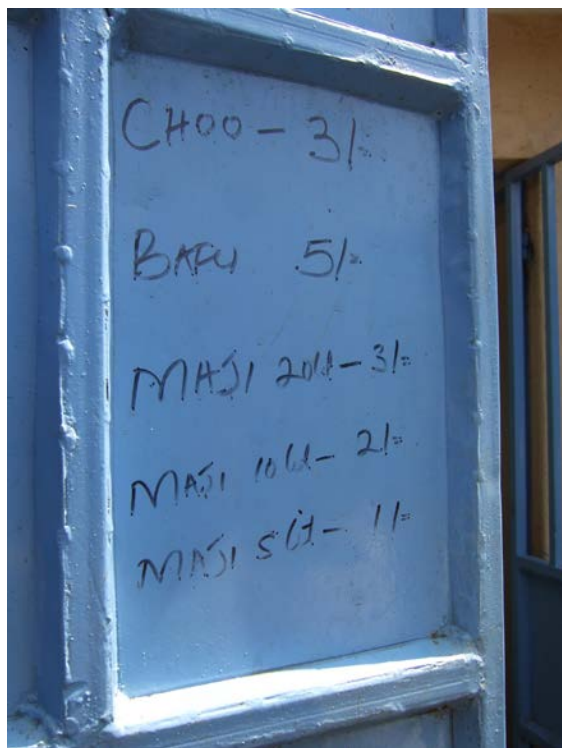 CHOO - 3/=
BAFU 5/=
MAJI 20lt - 3/=
MAJI 10lt - 2/=
MAJI 5lit - 1/=